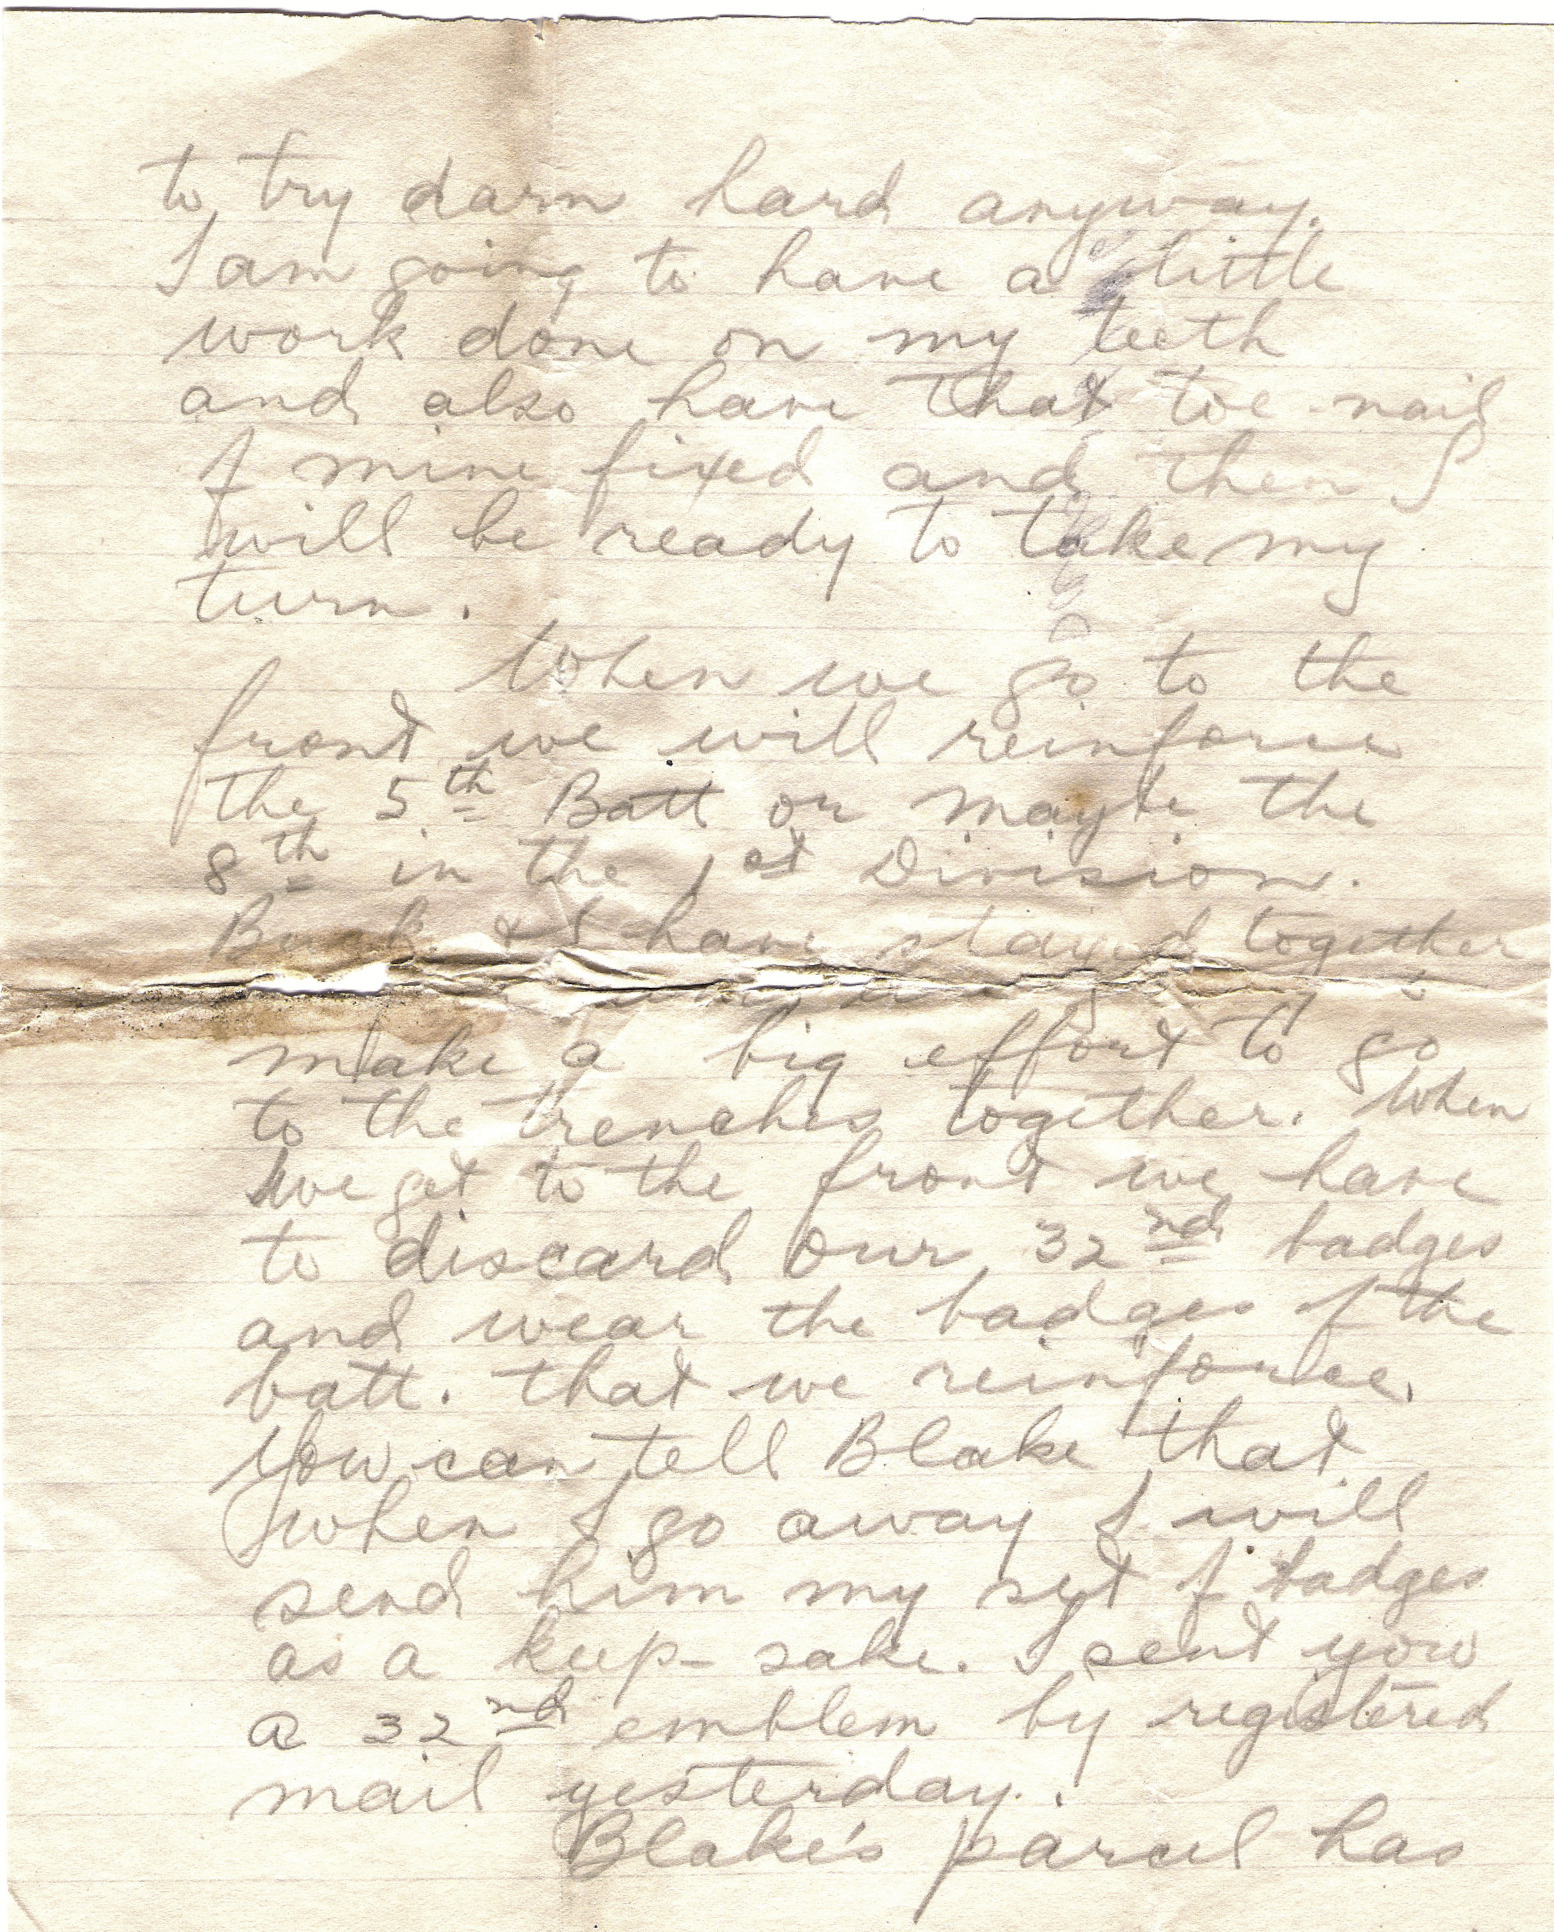 to try darn hard anyway.
I am going to have a little
work done on my teeth
and also have that toe nail
of mine fixed and then I
will be ready to take my
turn.
When we go to the
front we will reinforce
the 5th Batt or maybe the
8th in the 1st Division.
Buck & I have stayed together
make a big effort to go
to the trenches together. When
we get to the front we have
to discard our 32nd badges
and wear the badges of the
batt. that we reinforce.
You can tell Blake that
when I go away I will
send him my set of badges
as a keep-sake. I sent you
a 32nd emblem by registered
mail yesterday.
Blake's parcel has